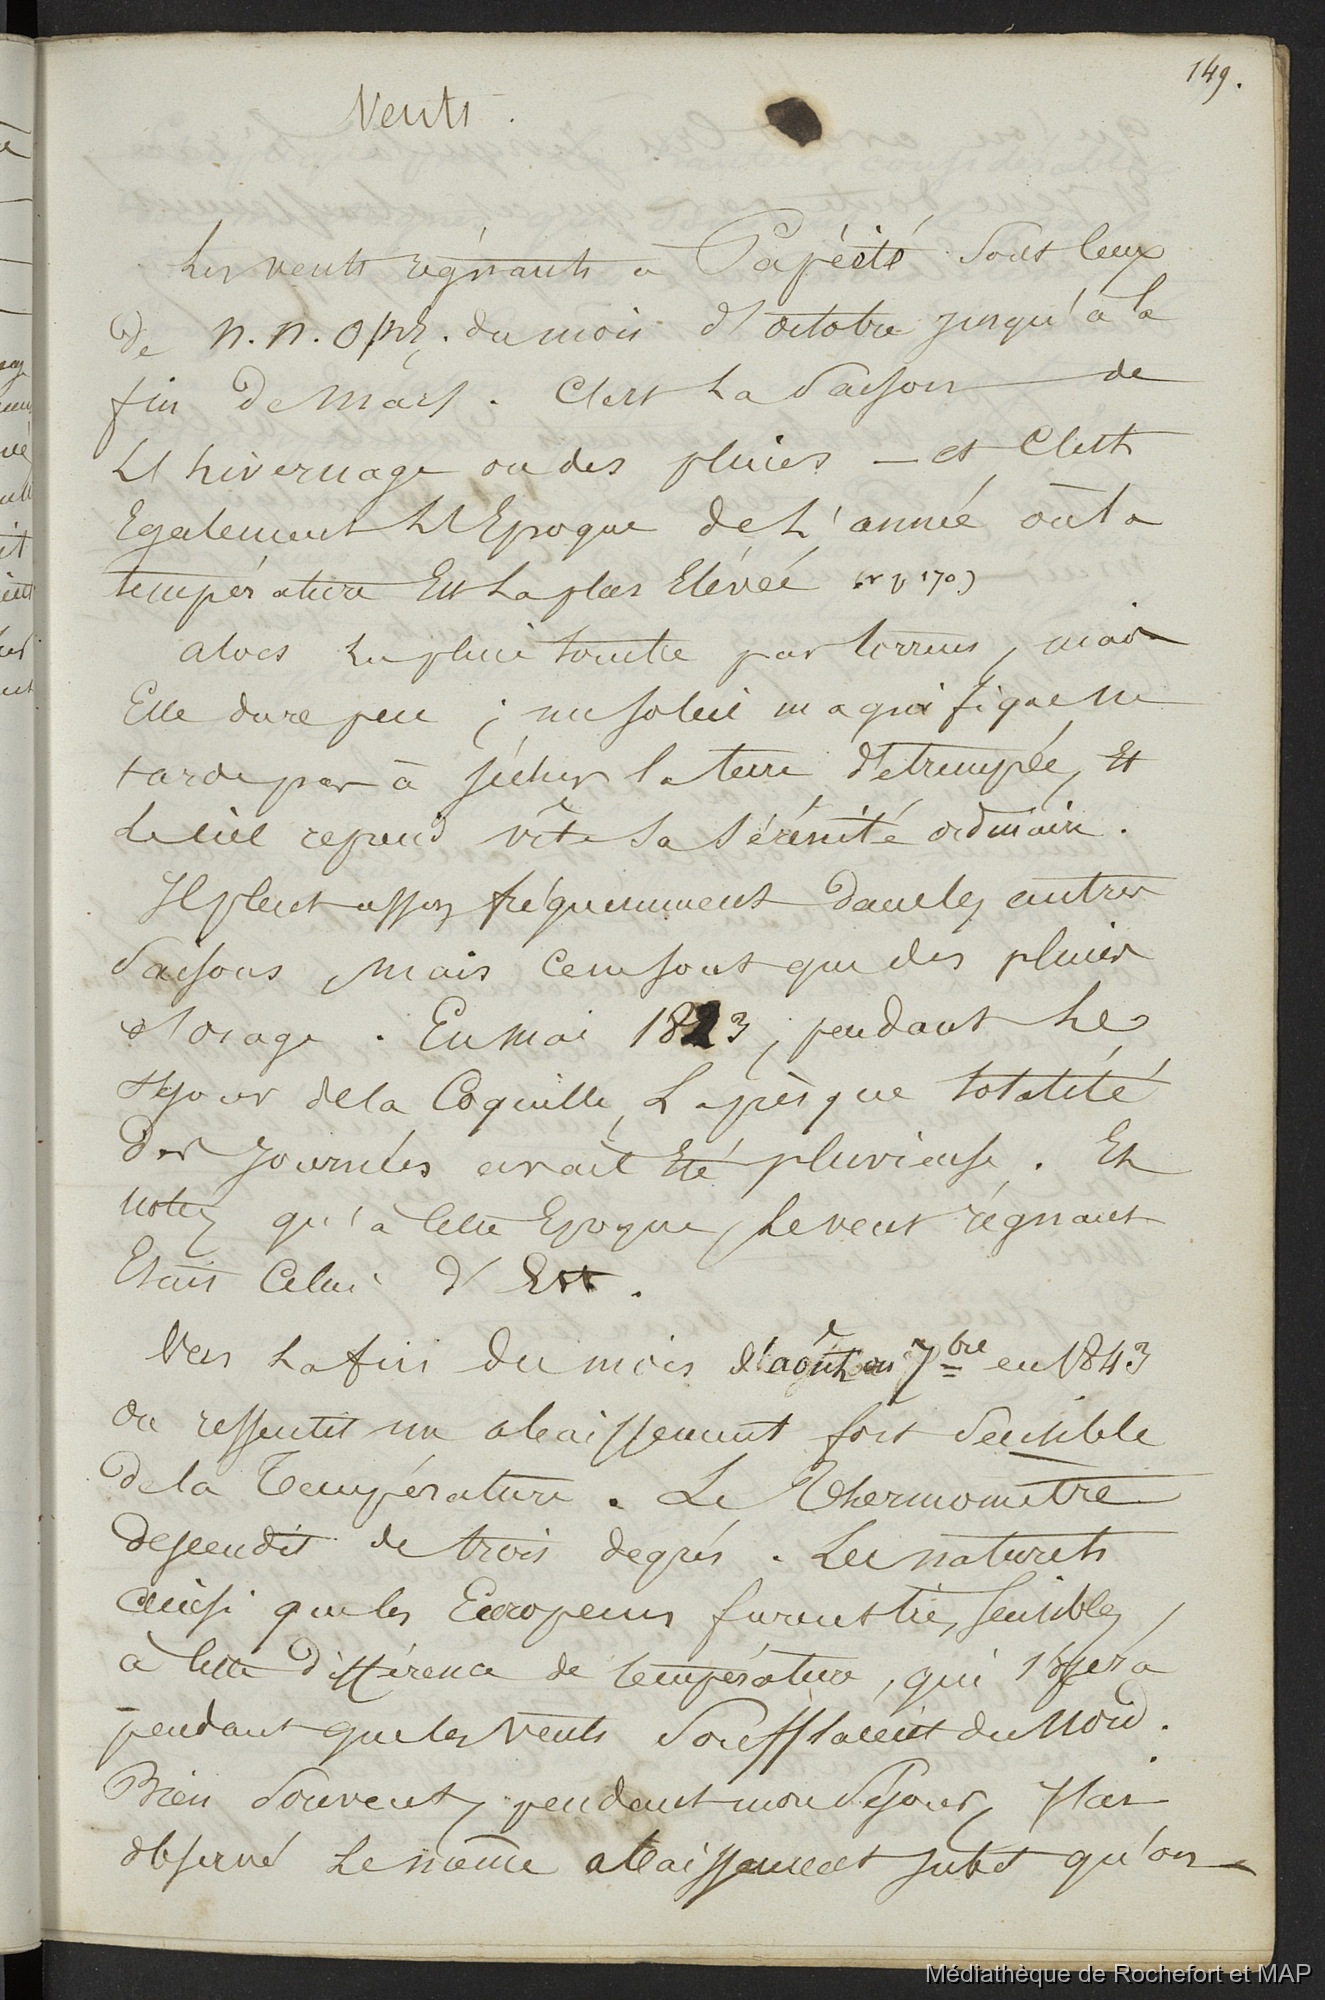 149.
Vents.
Les vents régnants à Papéïté sont ceux
de n. n. o. du mois d'octobre jusqu'à la
fin de mars. C'est la saison de
l'hivernage ou des pluies – et c'est
également l'époque de l'année où la
température est la plus élévée (v p 170)
alors la pluie tombe par torrens, mais
Elle dure peu ; un soleil magnifique ne
tarde pas à sécher la terre détrempée, Et
le ciel reprend vîte sa sérénité ordinaire.
Il pleut assez fréquemment dans les autres
saisons, mais ce ne sont que des pluies
d'orage. En mai 1823, pendant le
séjour de la Coquille, la présque totalité
des journées avait été pluvieuse. Et
notez qu'à cette Epoque, le vent régnant
Etait celui d'Est.
Vers la fin du mois d'août ou 7bre en 1843
on ressentit un abaissement fort sensible
de la température. Le Thermomètre
descendit de trois degrés. Les naturels
ainsi que les Européens furent très sensibles
à cette différence de température, qui s'opéra
pendant que les vents soufflaient du Nord.
Bien souvent, pendant mon séjour, j'ai
observé le même abaissement subit qu'on
Médiathèque de Rochefort et MAP